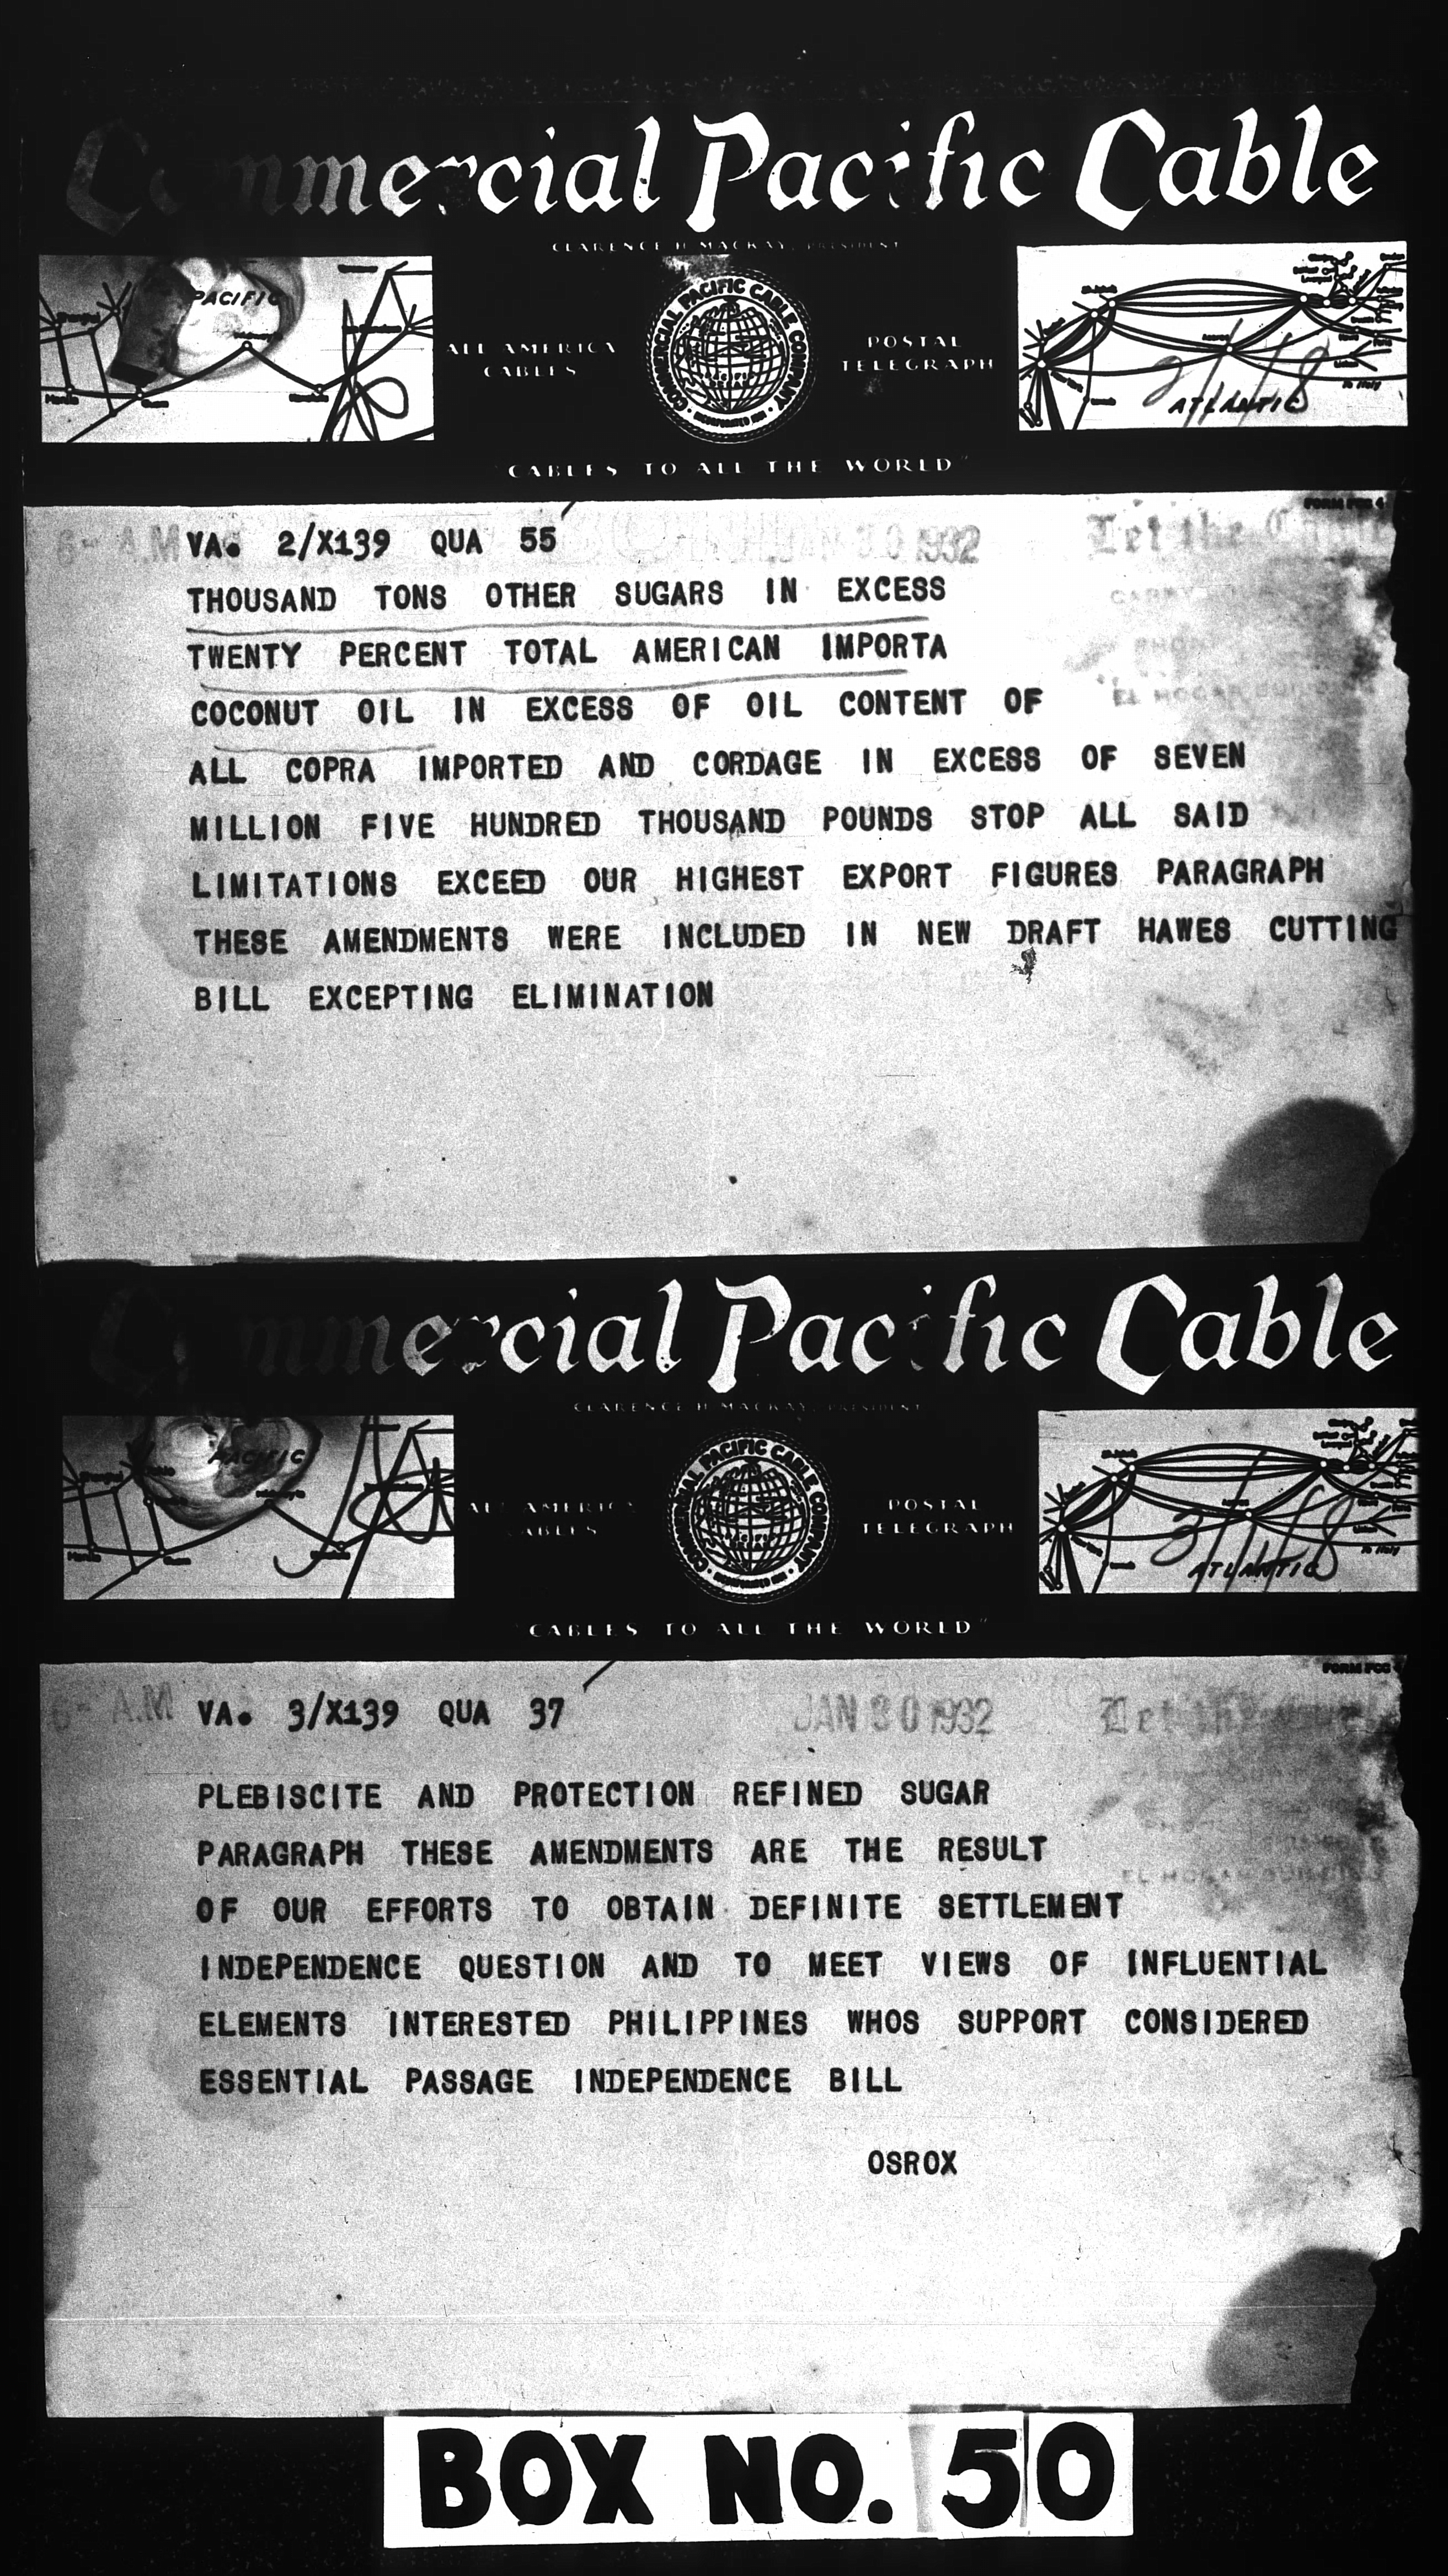 Commercial Pacific Cable
CLARENCE H. MACKAY, PRESIDENT
PACIFIC
ALL AMERICA
CABLES
COMMERCIAL PACIFIC CABLE COMPANY
POSTAL
TELEGRAPH
ATLANTIC
To Italy
"CABLES TO ALL THE WORLD"
6- A.M VA. 2/X139 QUA 55 30 1932 Let the
THOUSAND TONS OTHER SUGARS IN EXCESS
TWENTY PERCENT TOTAL AMERICAN IMPORTA
COCONUT OIL IN EXCESS OF OIL CONTENT OF
ALL COPRA IMPORTED AND CORDAGE IN EXCESS OF SEVEN
MILLION FIVE HUNDRED THOUSAND POUNDS STOP ALL SAID
LIMITATIONS EXCEED OUR HIGHEST EXPORT FIGURES PARAGRAPH
THESE AMENDMENTS WERE INCLUDED IN NEW DRAFT HAWES CUTTING
BILL EXCEPTING ELIMINATION
Commercial Pacific Cable
CLARENCE H. MACKAY, PRESIDENT
PACIFIC
ALL AMERICA
CABLES
COMMERCIAL PACIFIC CABLE COMPANY
POSTAL
TELEGRAPH
ATLANTIC
To Italy
"CABLES TO ALL THE WORLD"
6- A.M VA. 3/X139 QUA 37 JAN 30 1932 Let the
PLEBISCITE AND PROTECTION REFINED SUGAR
PARAGRAPH THESE AMENDMENTS ARE THE RESULT
OF OUR EFFORTS TO OBTAIN DEFINITE SETTLEMENT
INDEPENDENCE QUESTION AND TO MEET VIEWS OF INFLUENTIAL
ELEMENTS INTERESTED PHILIPPINES WHOS SUPPORT CONSIDERED
ESSENTIAL PASSAGE INDEPENDENCE BILL
OSROX
BOX NO. 50